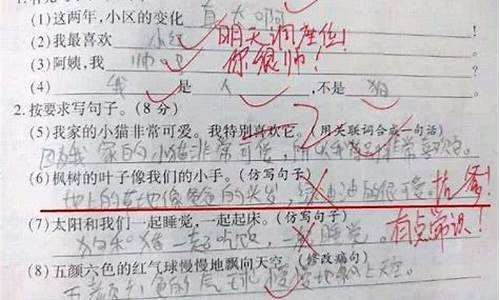 (1)这两年,小区的变化 真大啊
(2)我最喜欢 小红 明天调座位!
(3)阿姨,我 帅吧 你很帅!
(4) 我 是 人 ,不是 狗
2.按要求写句子。(8 分)
(5)我家的小猫非常可爱。我特别喜欢它。(用关联词合成一句话)
因为我家的小猫非常可爱,所以我非常喜欢它。
(6)枫树的叶子像我们的小手。(仿写句子)
地上的草地像爸爸的头发,绿油油的很可爱。抗争!
(7)太阳和我们一起睡觉,一起起床。(仿写句子)
狗和猪一起吃饭,一起睡觉。有点常识!
(8)五颜六色的红气球慢慢地飘向天空。(修改病句)
五颜六色的气球慢慢地飘上天空。